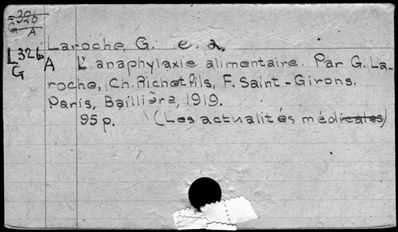 Laroche, G. e. a.
L326 A L'anaphylaxie alimentaire. Par G. La-
G roche, Ch. Richet fils, F. Saint-Girons.
Paris, Baillière, 1919.
95p. (Les actualités médicales)